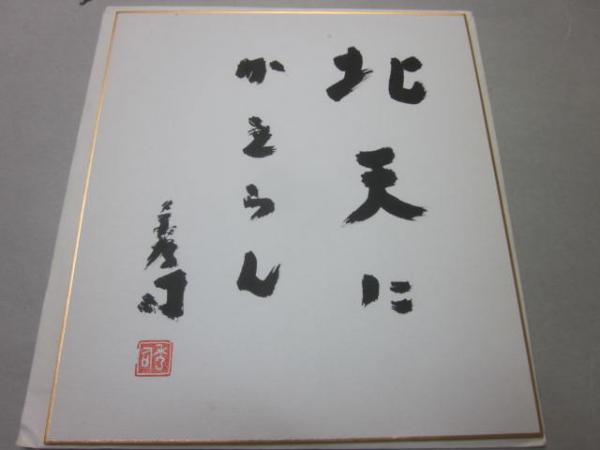 北天に
かえらん